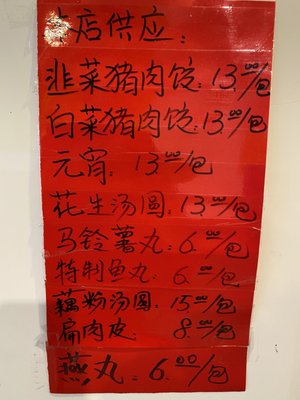 本店供应：
韭菜猪肉饺：13.00/包
白菜猪肉饺：13.00/包
元宵：13.00/包
花生汤圆：13.00/包
马铃薯丸：6.00/包
特制鱼丸：6.00/包
藕粉汤圆：15.00/包
扁肉皮：8.00/包
燕丸：6.00/包